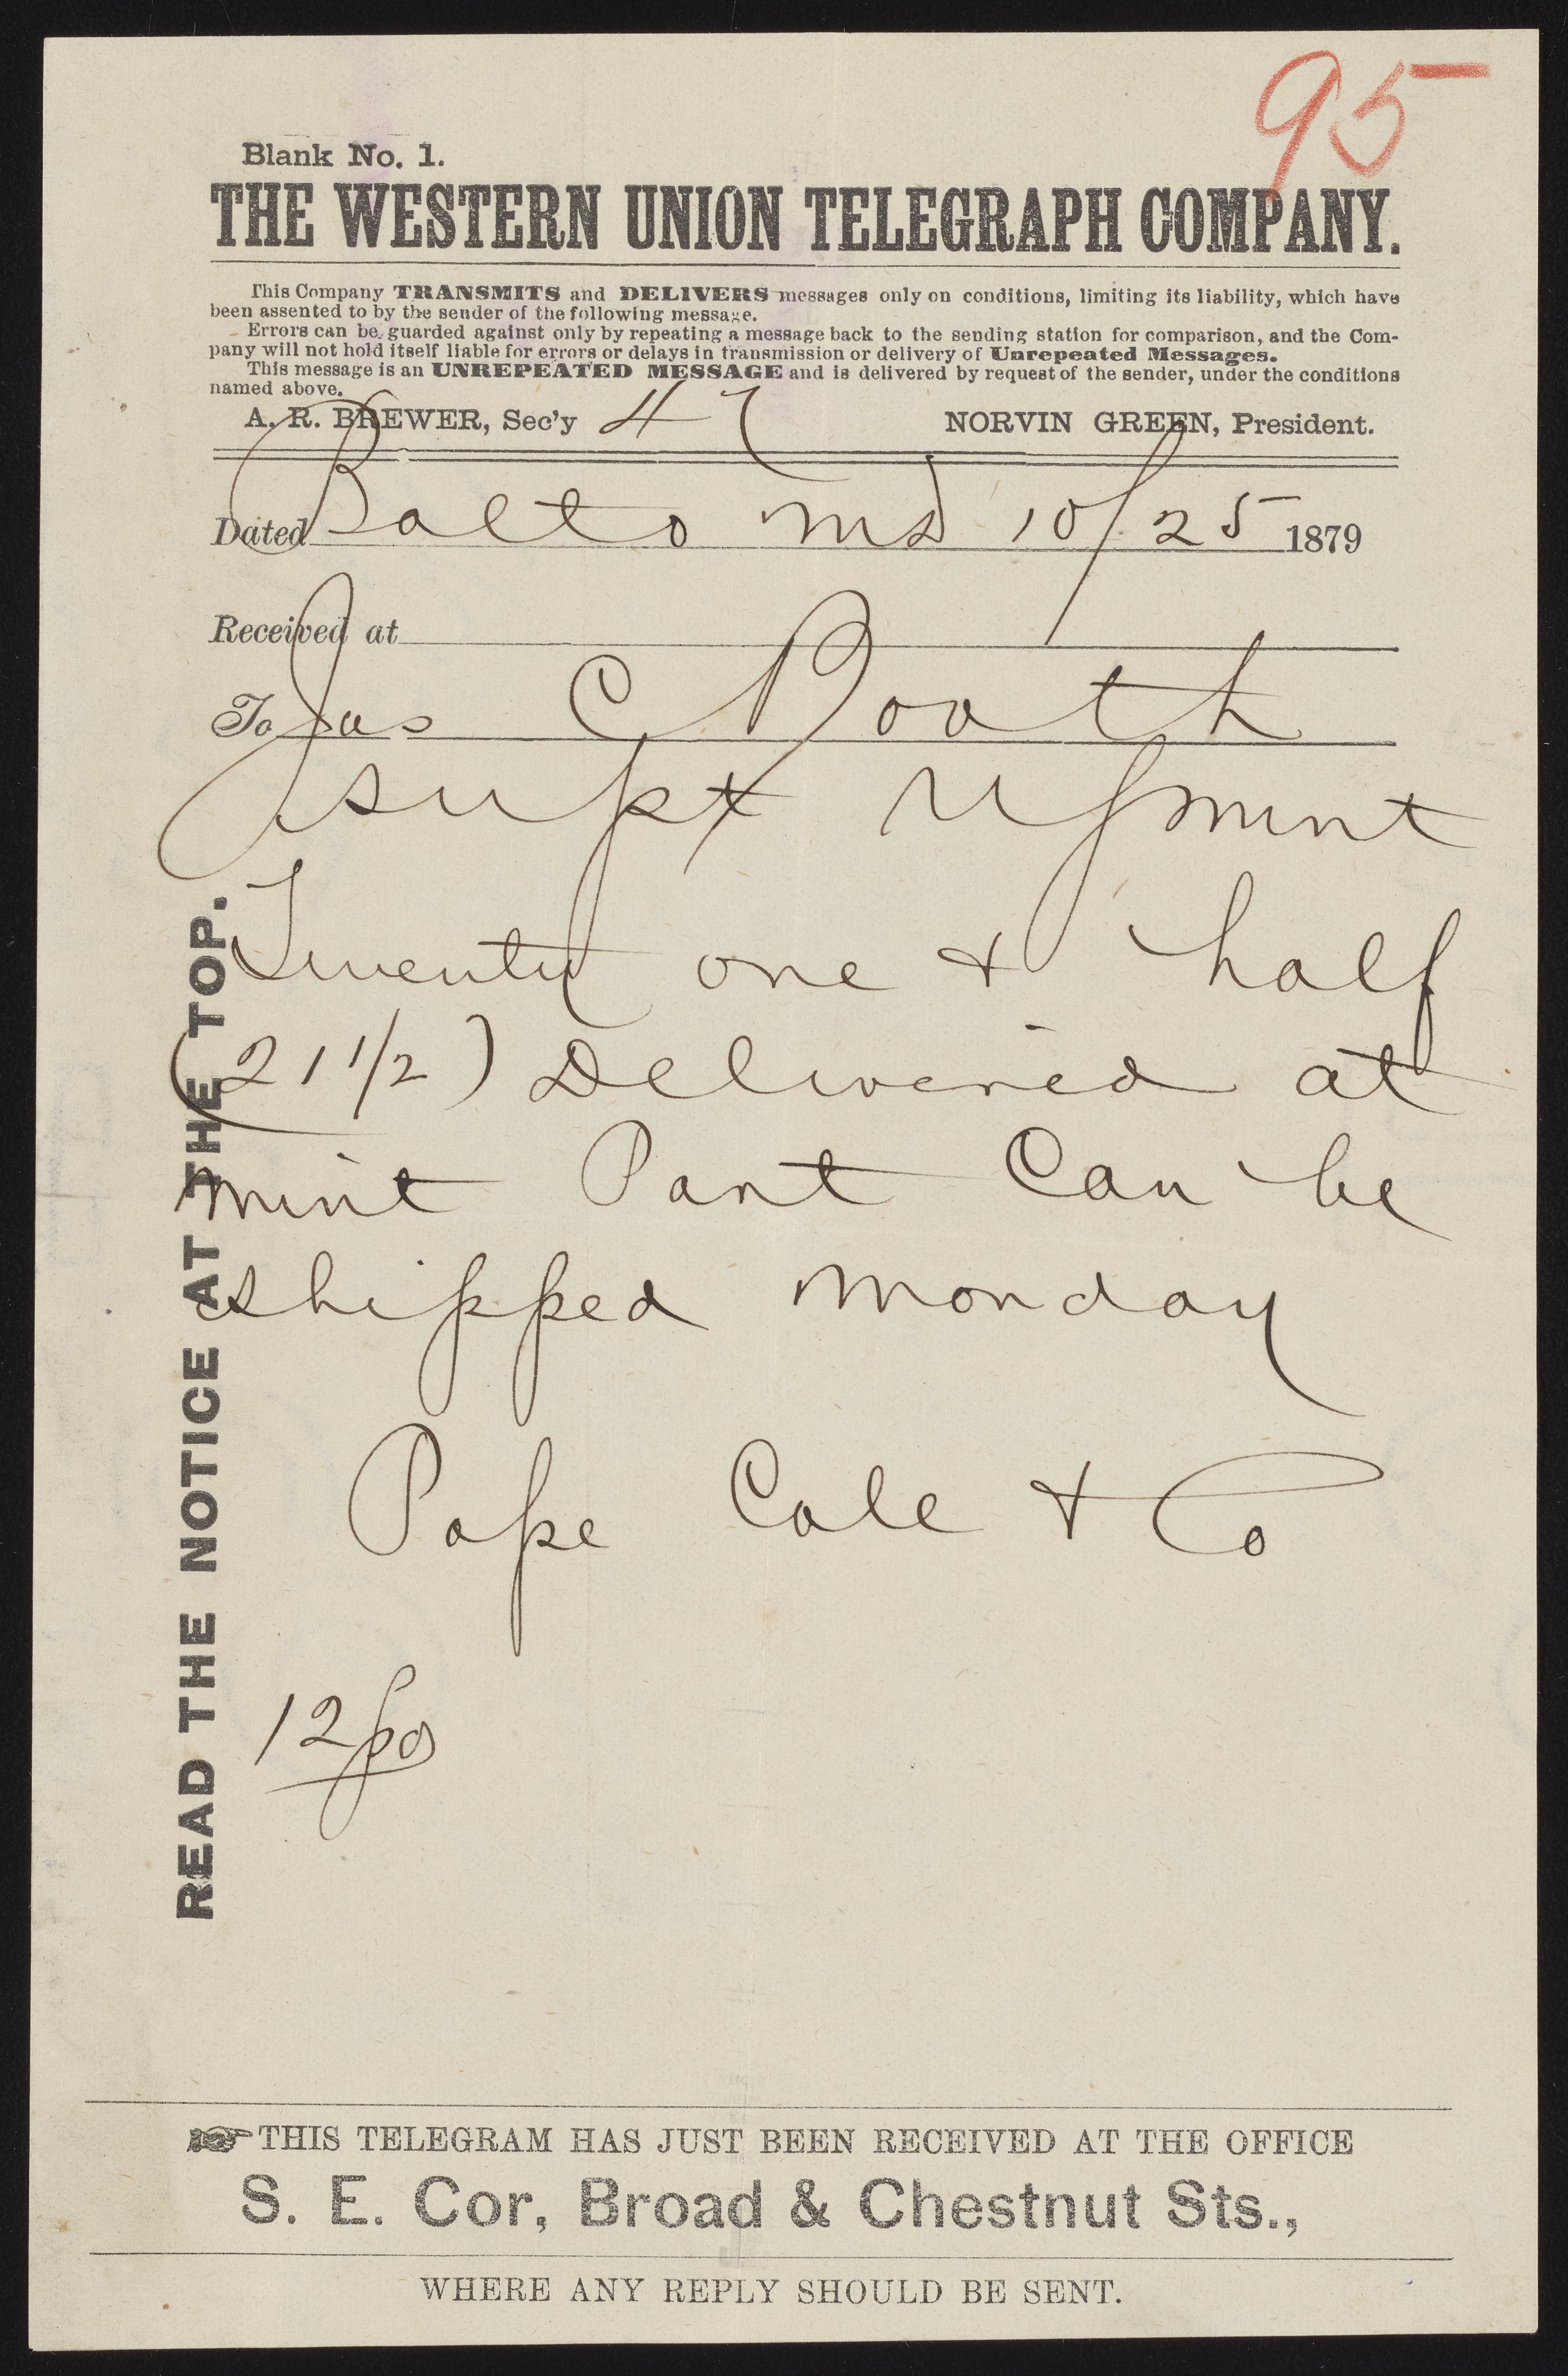 95
Blank No. 1.
THE WESTERN UNION TELEGRAPH COMPANY.
This Company TRANSMITS and DELIVERS messages only on conditions, limiting its liability, which have
been assented to by the sender of the following message.
Errors can be guarded against only by repeating a message back to the sending station for comparison, and the Com-
pany will not hold itself liable for errors or delays in transmission or delivery of Unrepeated Messages.
This message is an UNREPEATED MESSAGE and is delivered by request of the sender, under the conditions
named above.
A. R. BREWER, Sec'y 47 NORVIN GREEN, President.
Dated Balto Md 10/25 1879
Received at
To Jas C Booth
Supt US mint
Twenty one & half
(21 1/2) Delivered at
mint Part Can be
shipped Monday
Pope Cole & Co
12
READ THE NOTICE AT THE TOP.
THIS TELEGRAM HAS JUST BEEN RECEIVED AT THE OFFICE
S. E. Cor, Broad & Chestnut Sts.,
WHERE ANY REPLY SHOULD BE SENT.